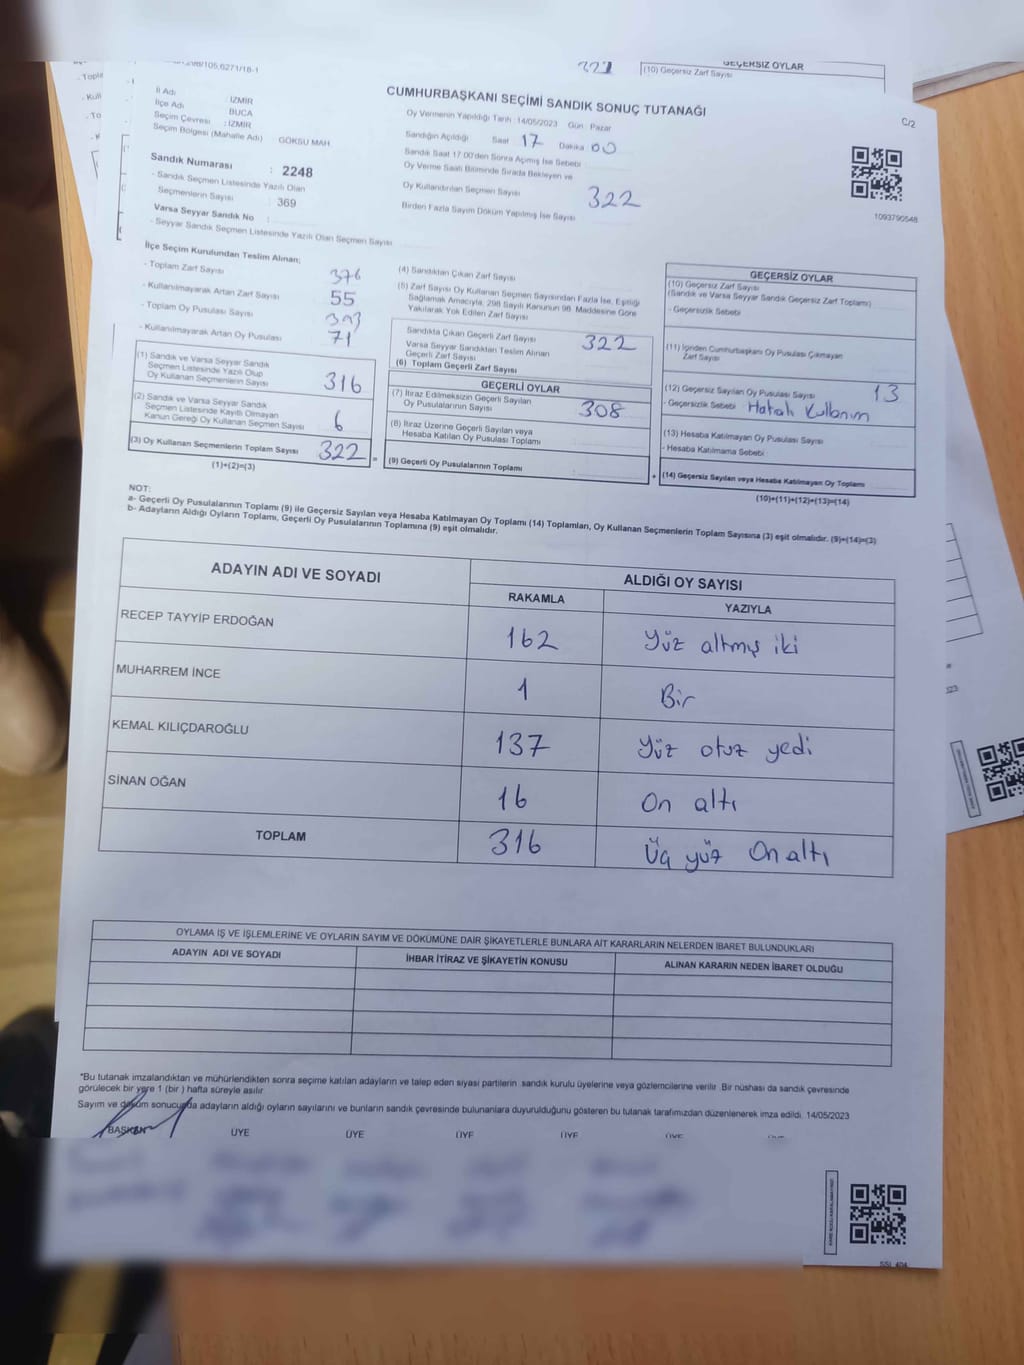 298/105,6271/18-1
GEÇERSİZ OYLAR
(10) Geçersiz Zarf Sayısı
CUMHURBAŞKANI SEÇİMİ SANDIK SONUÇ TUTANAĞI
C/2
İl Adı : İZMİR
İlçe Adı : BUCA
Seçim Çevresi : İZMİR
Seçim Bölgesi (Mahalle Adı) : GÖKSU MAH.
Sandık Numarası : 2248
- Sandık Seçmen Listesinde Yazılı Olan
Seçmenlerin Sayısı : 369
Varsa Seyyar Sandık No :
- Seyyar Sandık Seçmen Listesinde Yazılı Olan Seçmen Sayısı
Oy Vermenin Yapıldığı Tarih : 14/05/2023 Gün : Pazar
Sandığın Açıldığı Saat 17 Dakika 00
Sandık Saat 17.00'den Sonra Açılmış İse Sebebi
Oy Verme Saati Bitiminde Sırada Bekleyen ve
Oy Kullandırılan Seçmen Sayısı 322
Birden Fazla Sayım Döküm Yapılmış İse Sayısı
1093790548
İlçe Seçim Kurulundan Teslim Alınan;
- Toplam Zarf Sayısı 376
- Kullanılmayarak Artan Zarf Sayısı 55
- Toplam Oy Pusulası Sayısı
- Kullanılmayarak Artan Oy Pusulası 71
(1) Sandık ve Varsa Seyyar Sandık
Seçmen Listesinde Yazılı Olup
Oy Kullanan Seçmenlerin Sayısı 316
(2) Sandık ve Varsa Seyyar Sandık
Seçmen Listesinde Kayıtlı Olmayan
Kanun Gereği Oy Kullanan Seçmen Sayısı 6
(3) Oy Kullanan Seçmenlerin Toplam Sayısı 322
(1)+(2)=(3)
(4) Sandıktan Çıkan Zarf Sayısı
(5) Zarf Sayısı Oy Kullanan Seçmen Sayısından Fazla İse, Eşitliği
Sağlamak Amacıyla, 298 Sayılı Kanunun 98. Maddesine Göre
Yakılarak Yok Edilen Zarf Sayısı
Sandıkta Çıkan Geçerli Zarf Sayısı 322
Varsa Seyyar Sandıktan Teslim Alınan
Geçerli Zarf Sayısı
(6) Toplam Geçerli Zarf Sayısı
GEÇERLİ OYLAR
(7) İtiraz Edilmeksizin Geçerli Sayılan
Oy Pusulalarının Sayısı 308
(8) İtiraz Üzerine Geçerli Sayılan veya
Hesaba Katılan Oy Pusulası Toplamı
(9) Geçerli Oy Pusulalarının Toplamı
GEÇERSİZ OYLAR
(10) Geçersiz Zarf Sayısı
(Sandık ve Varsa Seyyar Sandık Geçersiz Zarf Toplamı)
- Geçersizlik Sebebi
(11) İçinden Cumhurbaşkanı Oy Pusulası Çıkmayan
Zarf Sayısı
(12) Geçersiz Sayılan Oy Pusulası Sayısı 13
- Geçersizlik Sebebi Hatalı Kullanım
(13) Hesaba Katılmayan Oy Pusulası Sayısı
- Hesaba Katılmama Sebebi
(14) Geçersiz Sayılan veya Hesaba Katılmayan Oy Toplamı
(10)+(11)+(12)+(13)=(14)
NOT:
a- Geçerli Oy Pusulalarının Toplamı (9) ile Geçersiz Sayılan veya Hesaba Katılmayan Oy Toplamı (14) Toplamları, Oy Kullanan Seçmenlerin Toplam Sayısına (3) eşit olmalıdır. (9)+(14)=(3)
b- Adayların Aldığı Oyların Toplamı, Geçerli Oy Pusulalarının Toplamına (9) eşit olmalıdır.
ADAYIN ADI VE SOYADI
ALDIĞI OY SAYISI
RAKAMLA YAZIYLA
RECEP TAYYİP ERDOĞAN 162 Yüz altmış iki
MUHARREM İNCE 1 Bir
KEMAL KILIÇDAROĞLU 137 Yüz otuz yedi
SİNAN OĞAN 16 On altı
TOPLAM 316 Üç yüz On altı
OYLAMA İŞ VE İŞLEMLERİNE VE OYLARIN SAYIM VE DÖKÜMÜNE DAİR ŞİKAYETLERLE BUNLARA AİT KARARLARIN NELERDEN İBARET BULUNDUKLARI
ADAYIN ADI VE SOYADI İHBAR İTİRAZ VE ŞİKAYETİN KONUSU ALINAN KARARIN NEDEN İBARET OLDUĞU
*Bu tutanak imzalandıktan ve mühürlendikten sonra seçime katılan adayların ve talep eden siyasi partilerin sandık kurulu üyelerine veya gözlemcilerine verilir. Bir nüshası da sandık çevresinde
görülecek bir yere 1 (bir) hafta süreyle asılır
Sayım ve döküm sonucunda adayların aldığı oyların sayılarını ve bunların sandık çevresinde bulunanlara duyurulduğunu gösteren bu tutanak tarafımızdan düzenlenerek imza edildi. 14/05/2023
BAŞKAN ÜYE ÜYE ÜYE ÜYE ÜYE